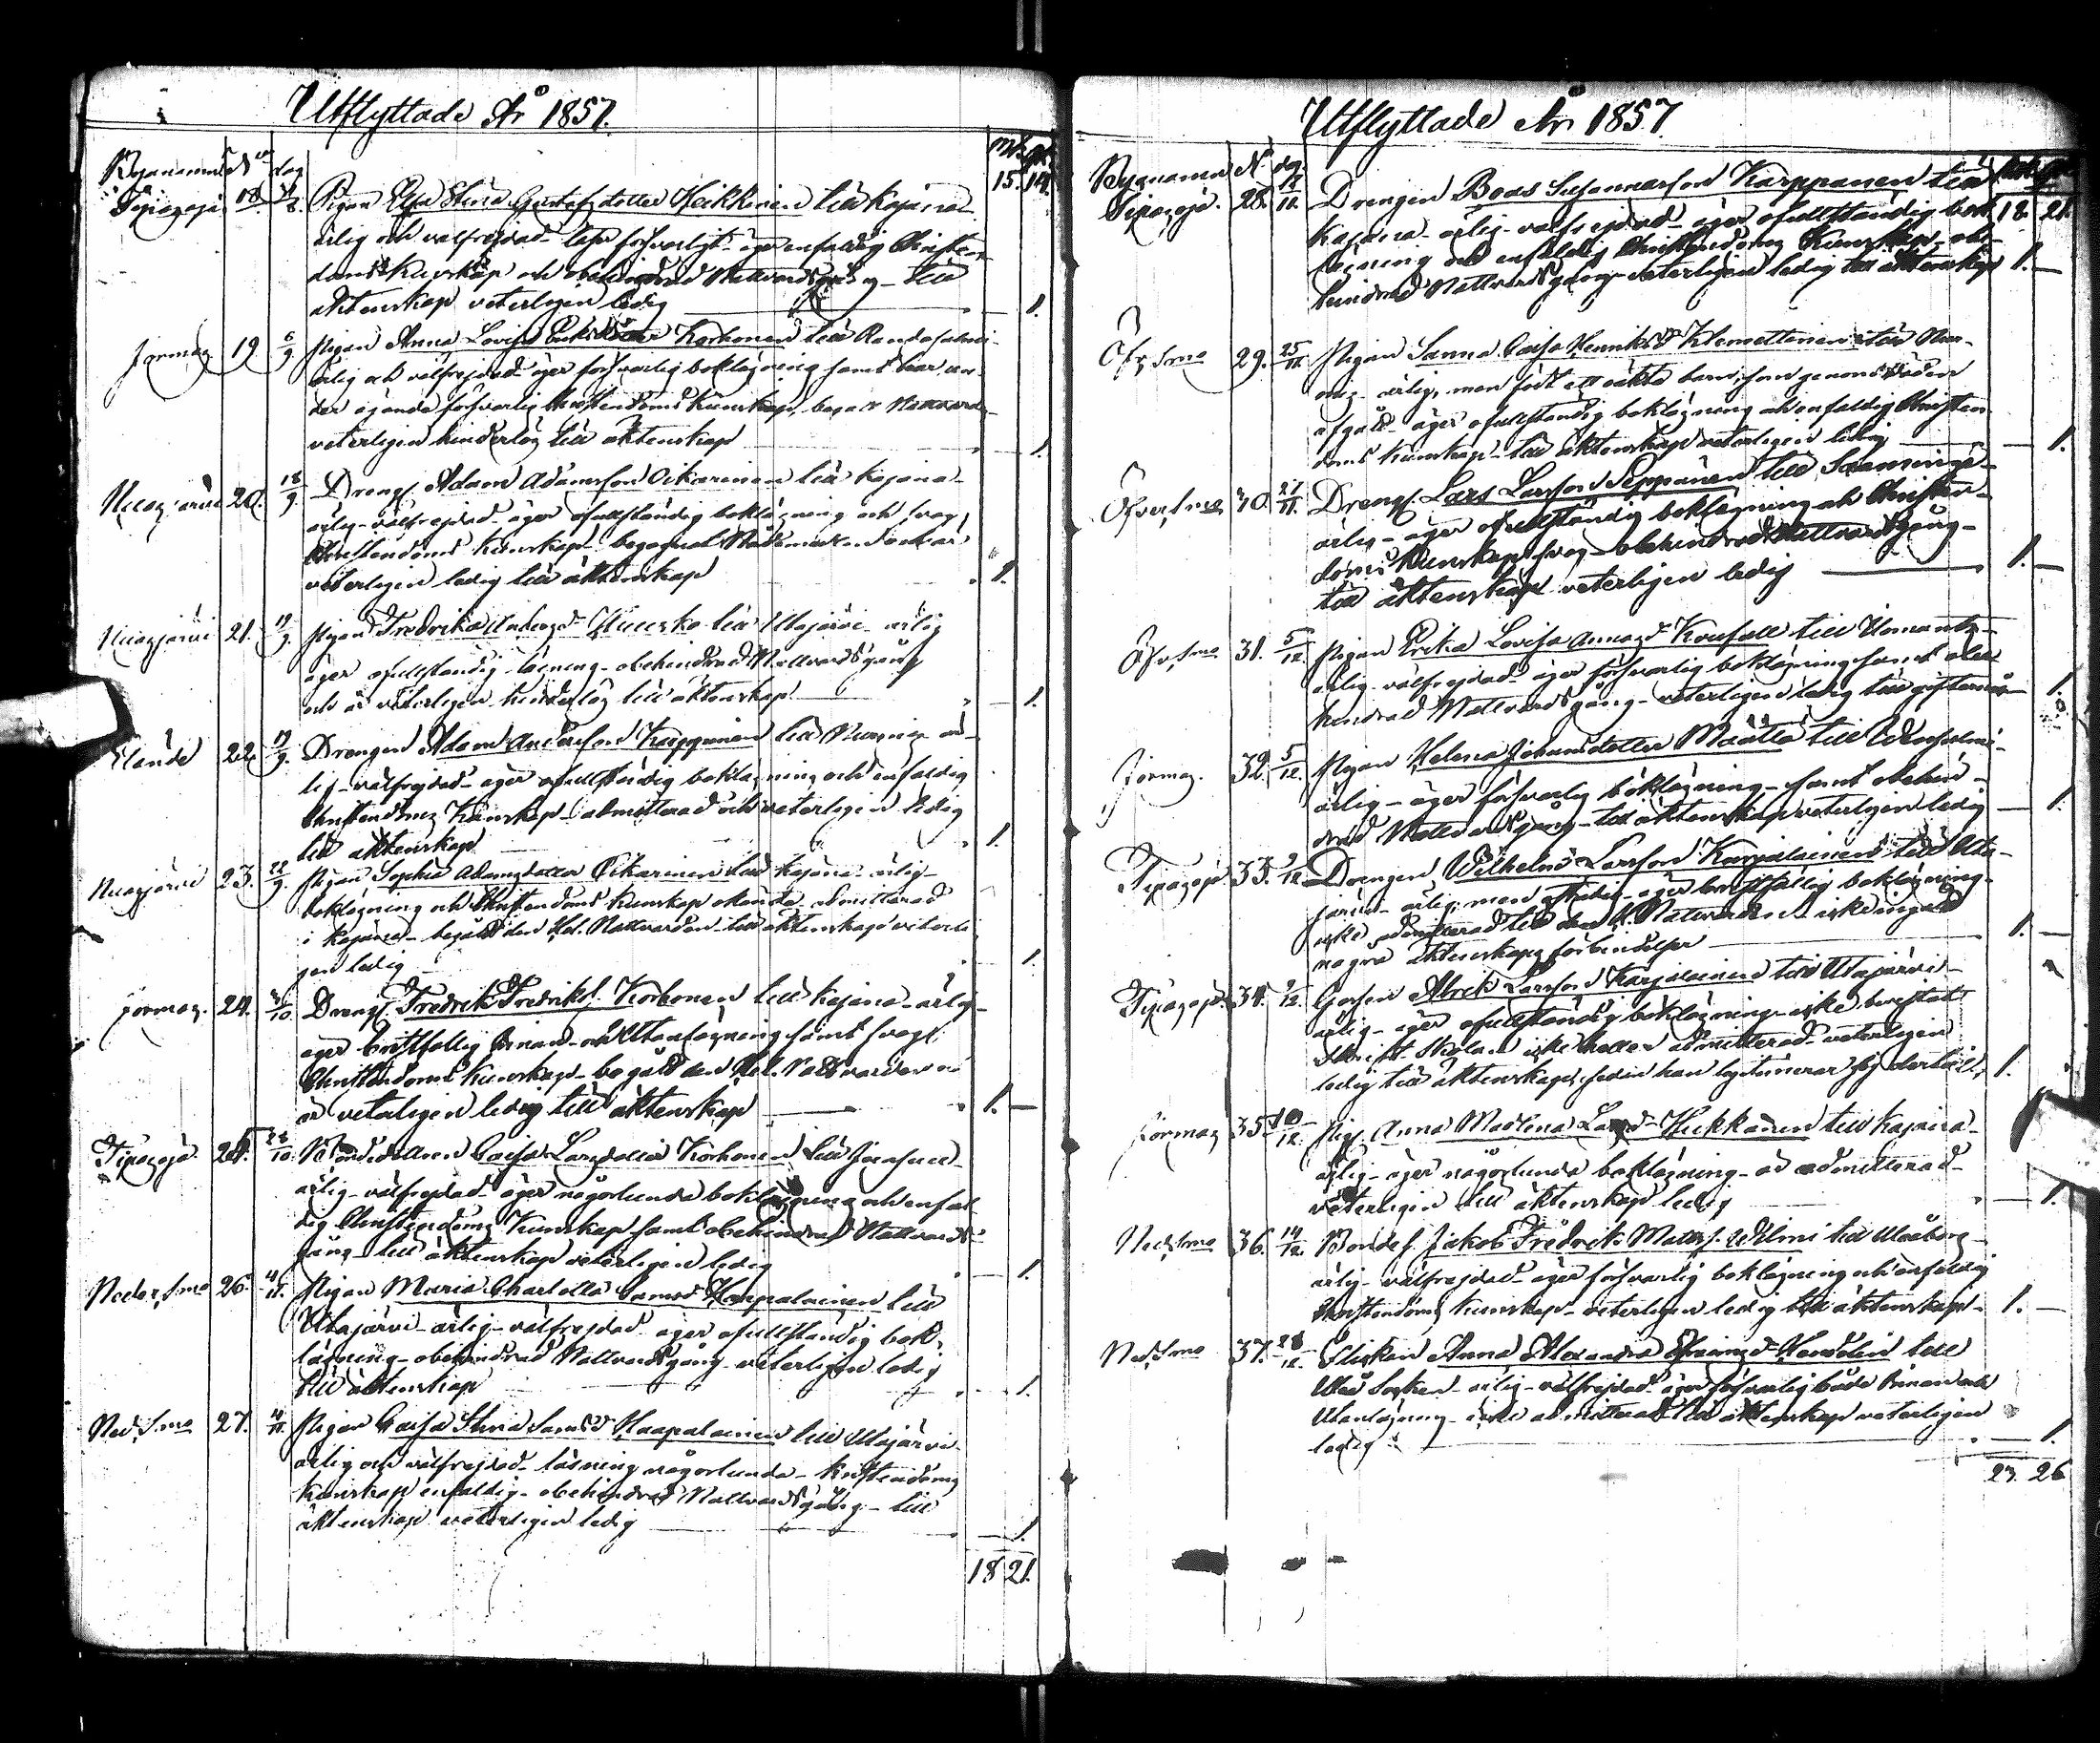 Utflyttade År 1857.
Bynamn No dag Mk. Qk.
15. 14.
Tipasoja 18. 8. Pigan Elsa Stina Gustafsdotter Heikkinen till Kajana
ärlig och välfrejdad läser försvarligt äger enfaldig Christen
doms Kunskap och obehindrad Nattvardsgång - till
äktenskap veterligen ledig 1.
Jormas 19. 6/9. Pigan Anna Lovisa Eriksdotter Korhonen till Randasalmi
ärlig och välfrejdad äger försvarlig bokläsning samt
ägande försvarlig Christendoms Kunskap,
veterligen hinderlös till äktenskap 1.
20. 18/9. Drengs. Adam Adamsson Oikarinen till Kajana
ärlig - välfrejdad äger ofullständig bokläsning och svag
Christendoms Kunskap - begagnat Nattvarden och är
veterligen ledig till äktenskap 1.
Nuasjärvi 21. 19/9. Pigan Fredrika Andersd. Huusko till Utajärvi - ärlig
äger ofullständig läsning - obehindrad Nattvardsgång
och är veterligen hinderlös till äktenskap 1.
22. 19/9. Drengen Adam Andersson Karppinen till är-
lig - välfrejdad - äger ofullständig bokläsning och enfaldig
Christendoms Kunskap - admitterad och veterligen ledig
till äktenskap 1.
Nuasjärvi 23. 22/9. Pigan Sophia Adamsdotter Oikarinen till Kajana ärlig -
bokläsning och Christendoms Kunskap okända - admitterad
i Kajana - begått den Hel. Nattvarden - till äktenskap veterli
gen ledig 1.
Jormas. 24. /10 Drengs. Fredrik Fredriks. Korhonen till Kajana - ärlig -
äger bristfällig Innan- och Utanläsning samt svag
Christendoms Kunskap - begått den Hel. Nattvarden
är veterligen ledig till äktenskap 1.
Tipasoja. 25. 28/10. Bondedottren Caisa Larsdotter Korhonen till
ärlig - välfrejdad - äger någorlunda bokläsning och enfal-
dig Christendoms Kunskap samt obehindrad Nattvards-
gång - till äktenskap veterligen ledig 1.
Neder, Smo 26. /11. Pigan Maria Charlotta Samsd. Haapalainen till
Utajärvi - ärlig - välfrejdad äger ofullständig bok-
läsning - obehindrad Nattvardsgång - veterligen ledig
till äktenskap 1.
Ned, Smo 27. /11. Pigan Caisa Stina Samsd. Haapalainen till Utajärvi
ärlig och välfrejdad - läsning någorlunda - Kristendoms
kunskap enfaldig - obehindrad Nattvardsgång - till
äktenskap veterligen ledig 1.
18 21.
Utflyttade År 1857
Bynamn No dag
Tipasoja. 28. /11. Drengen Boas Susannasson Karppanen till 18. 21.
Kajana - ärlig - välfrejdad - äger ofullständig bok
läsning och enfaldig Christendoms Kunskap - obe-
hindrad Nattvardsgång - veterligen ledig till äktenskap 1.
Öfv, Smo 29. 25/11. Pigan Sanna Caisa Henriksd. Klemettinen till
ärlig, men född ett oäkta barn, som genom döden
afgått - äger ofullständig bokläsning och enfaldig Christen
doms kunskap - till äktenskap veterligen ledig 1.
Öfver, Smo 30. 27/11. Drengs. Lars Larsson Seppänen till
ärlig - äger ofullständig bokläsning och Christen-
doms Kunskap svag - obehindrad Nattvardsgång -
till äktenskap veterligen ledig 1.
Öfv, Smo 31. 5/12. Pigan Erika Lovisa Annasd. till
ärlig - välfrejdad - äger försvarlig bokläsning samt obe
hindrad Nattvardsgång - veterligen ledig till giftermål 1.
Jormas. 32. 5/12. Pigan Helena Johansdotter Määttä till
ärlig - äger försvarlig bokläsning - samt obehin-
drad Nattvardsgång - till äktenskap veterligen ledig 1.
Tipasoja 33. 9/12. Drengen Wilhelm Larsson Karjalainen till Uta-
järvi - ärlig, men - äger bristfällig bokläsning -
icke admitterad till den H. Nattvarden - icke ingått
några äktenskaps förbindelser 1.
Tipasoja. 34. 9/12. Gossen Alrik Larsson Karjalainen till Utajärvi -
ärlig - äger ofullständig bokläsning - icke bevistat
Skrift-Skolan icke heller admitterad - veterligen
ledig till äktenskap, sedan han legitimerar sig dertill 1.
Jormas 35. 10/12. Pig. Anna Madlena Larsd. Heikkinen till Kajana -
ärlig - äger någorlunda bokläsning - är admitterad -
veterligen till äktenskap ledig 1.
Ned, Smo 36. 14/12. Bondes. Jakob Fredrik Matts. Wilmi till Uleåborg -
ärlig - välfrejdad - äger försvarlig bokläsning och enfaldig
Christendoms Kunskap - veterligen ledig till äktenskap - 1.
Ned, Smo 37. 28/12. Flickan Anna Alexandra Efraimsd. Handolin till
Uleå Socken - ärlig - välfrejdad - äger försvarlig både Innan och
Utanläsning - icke admitterad - till äktenskap veterligen
ledig 1.
23. 26